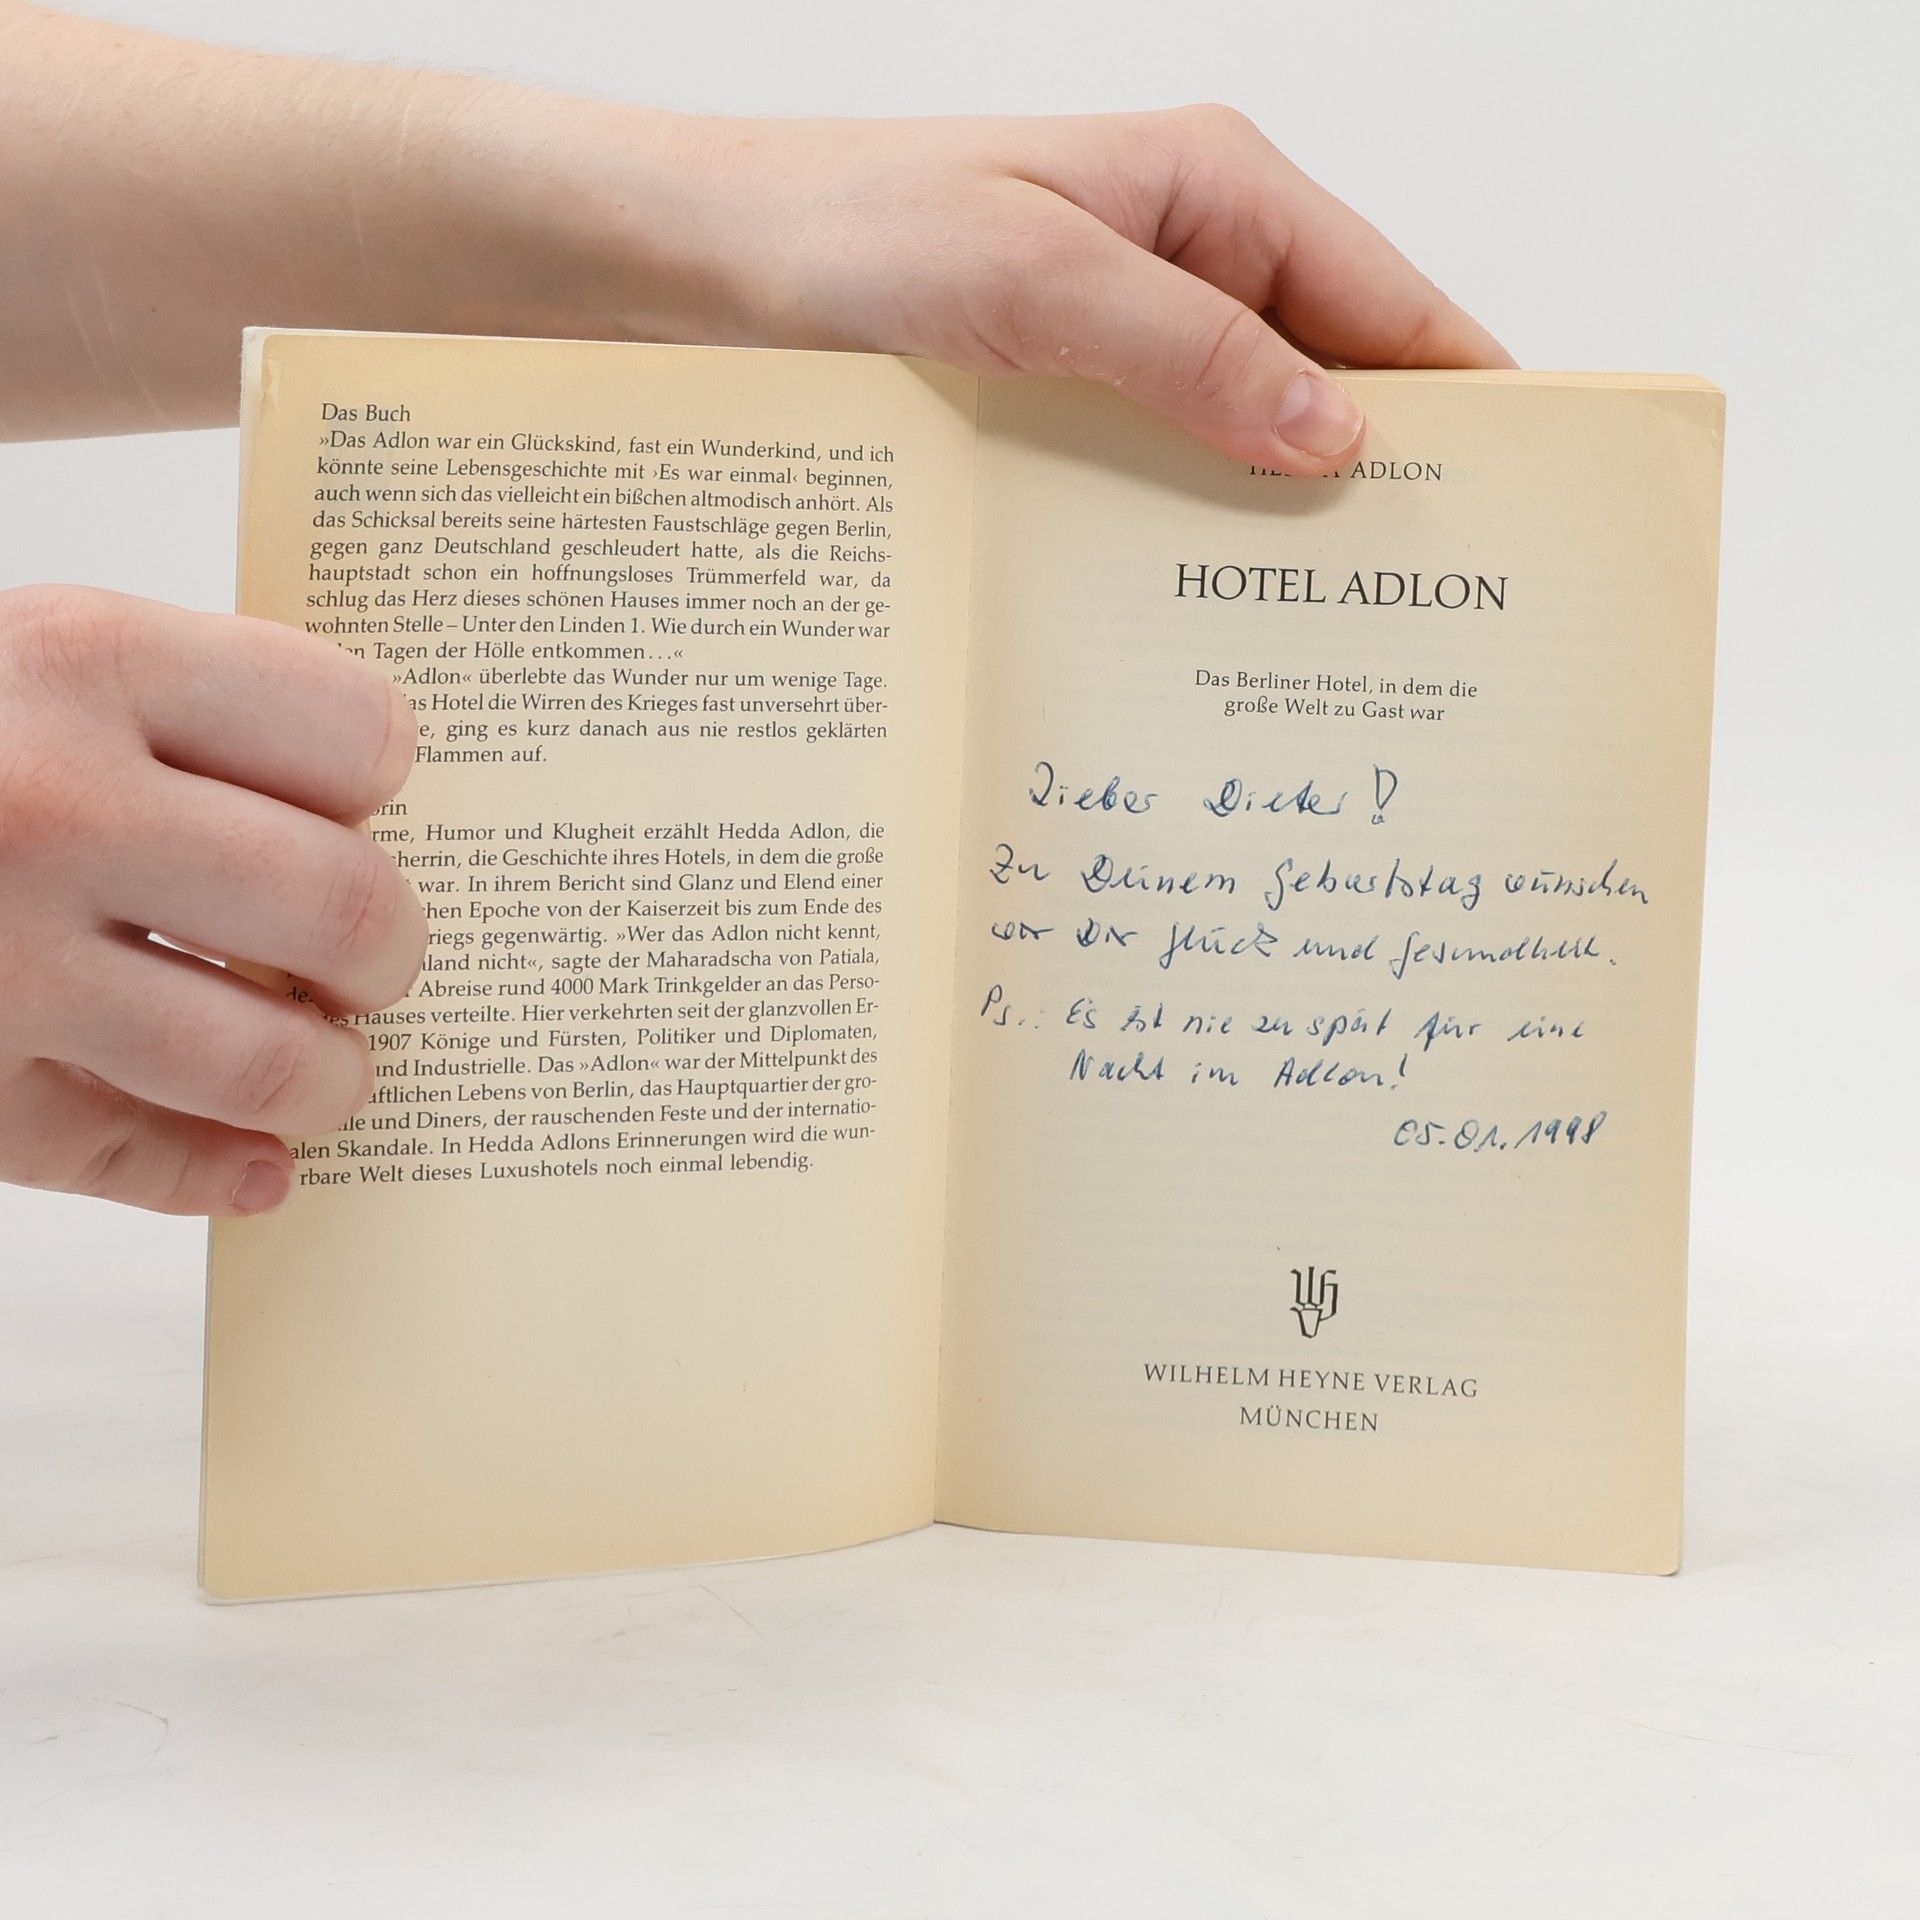 Das Buch
»Das Adlon war ein Glückskind, fast ein Wunderkind, und ich
könnte seine Lebensgeschichte mit ›Es war einmal‹ beginnen,
auch wenn sich das vielleicht ein bißchen altmodisch anhört. Als
das Schicksal bereits seine härtesten Faustschläge gegen Berlin,
gegen ganz Deutschland geschleudert hatte, als die Reichs-
hauptstadt schon ein hoffnungsloses Trümmerfeld war, da
schlug das Herz dieses schönen Hauses immer noch an der ge-
wohnten Stelle – Unter den Linden 1. Wie durch ein Wunder war
Tagen der Hölle entkommen…«
»Adlon« überlebte das Wunder nur um wenige Tage.
Hotel die Wirren des Krieges fast unversehrt über-
ging es kurz danach aus nie restlos geklärten
Flammen auf.
Humor und Klugheit erzählt Hedda Adlon, die
die Geschichte ihres Hotels, in dem die große
war. In ihrem Bericht sind Glanz und Elend einer
Epoche von der Kaiserzeit bis zum Ende des
gegenwärtig. »Wer das Adlon nicht kennt,
nicht«, sagte der Maharadscha von Patiala,
Abreise rund 4000 Mark Trinkgelder an das Perso-
Hauses verteilte. Hier verkehrten seit der glanzvollen Er-
1907 Könige und Fürsten, Politiker und Diplomaten,
und Industrielle. Das »Adlon« war der Mittelpunkt des
Lebens von Berlin, das Hauptquartier der gro-
und Diners, der rauschenden Feste und der internatio-
alen Skandale. In Hedda Adlons Erinnerungen wird die wun-
rbare Welt dieses Luxushotels noch einmal lebendig.
ADLON
HOTEL ADLON
Das Berliner Hotel, in dem die
große Welt zu Gast war
Lieber Dieter!
Zu Deinem Geburtstag wünschen
wir Dir Glück und Gesundheit.
Ps.: Es ist nie zu spät für eine
Nacht im Adlon!
05.01.1998
WILHELM HEYNE VERLAG
MÜNCHEN